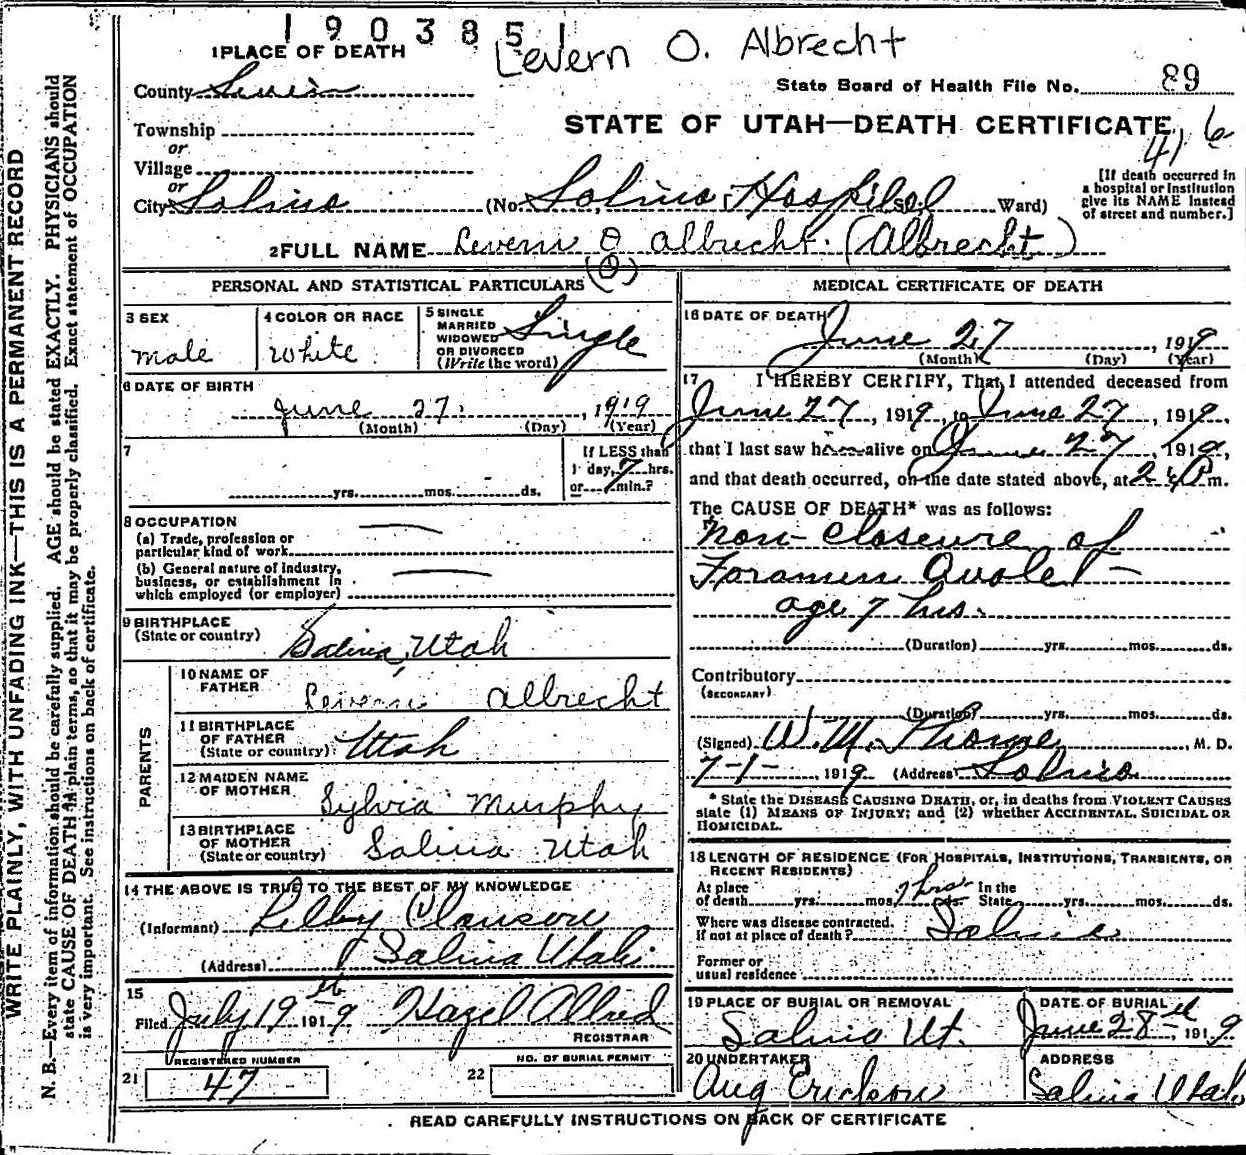 1903851
Levern O. Albrecht
1 PLACE OF DEATH
County Sevier
State Board of Health File No. 89
Township
STATE OF UTAH—DEATH CERTIFICATE
416
or
Village
or
City Salina (No. Salina Hospital St. Ward)
[If death occurred in
a hospital or institution
give its NAME instead
of street and number.]
2 FULL NAME Levern O Albrecht. (Albrecht)
(O)
PERSONAL AND STATISTICAL PARTICULARS
3 SEX
male
4 COLOR OR RACE
White
5 SINGLE
MARRIED
WIDOWED
OR DIVORCED
(Write the word)
Single
6 DATE OF BIRTH
June 27, 1919
(Month) (Day) (Year)
7
yrs. mos. ds.
If LESS than
1 day, 7 hrs.
or min.?
8 OCCUPATION
(a) Trade, profession or
particular kind of work
(b) General nature of industry,
business, or establishment in
which employed (or employer)
9 BIRTHPLACE
(State or country)
Salina, Utah
PARENTS
10 NAME OF
FATHER
Levern Albrecht
11 BIRTHPLACE
OF FATHER
(State or country)
Utah
12 MAIDEN NAME
OF MOTHER
Sylvia Murphy
13 BIRTHPLACE
OF MOTHER
(State or country)
Salina Utah
14 THE ABOVE IS TRUE TO THE BEST OF MY KNOWLEDGE
(Informant)
(Address) Salina Utah
15
Filed July 19th 1919 Hazel Allred
REGISTRAR
REGISTERED NUMBER
21 47
NO. OF BURIAL PERMIT
22
MEDICAL CERTIFICATE OF DEATH
16 DATE OF DEATH
June 27, 1919
(Month) (Day) (Year)
17 I HEREBY CERTIFY, That I attended deceased from
June 27, 1919, to June 27, 1919,
that I last saw h alive on June 27, 1919,
and that death occurred, on the date stated above, at P m.
The CAUSE OF DEATH* was as follows:
Non-closeure of
Foramen Ovale
age 7 hrs.
(Duration) yrs. mos. ds.
Contributory
(SECONDARY)
(Duration) yrs. mos. ds.
(Signed) W. M. , M. D.
7-1-, 1919 (Address) Salina
* State the DISEASE CAUSING DEATH, or, in deaths from VIOLENT CAUSES
state (1) MEANS OF INJURY; and (2) whether ACCIDENTAL, SUICIDAL OR
HOMICIDAL.
18 LENGTH OF RESIDENCE (FOR HOSPITALS, INSTITUTIONS, TRANSIENTS, OR
RECENT RESIDENTS)
At place In the
of death yrs. mos. 7 hrs ds. State yrs. mos. ds.
Where was disease contracted.
if not at place of death? Salina
Former or
usual residence
19 PLACE OF BURIAL OR REMOVAL
Salina Ut.
DATE OF BURIAL
June 28th, 1919
20 UNDERTAKER
Aug Erickson
ADDRESS
Salina Utah
READ CAREFULLY INSTRUCTIONS ON BACK OF CERTIFICATE
WRITE PLAINLY, WITH UNFADING INK—THIS IS A PERMANENT RECORD
N. B.—Every item of information should be carefully supplied. AGE should be stated EXACTLY. PHYSICIANS should
state CAUSE OF DEATH in plain terms, so that it may be properly classified. Exact statement of OCCUPATION
is very important. See instructions on back of certificate.